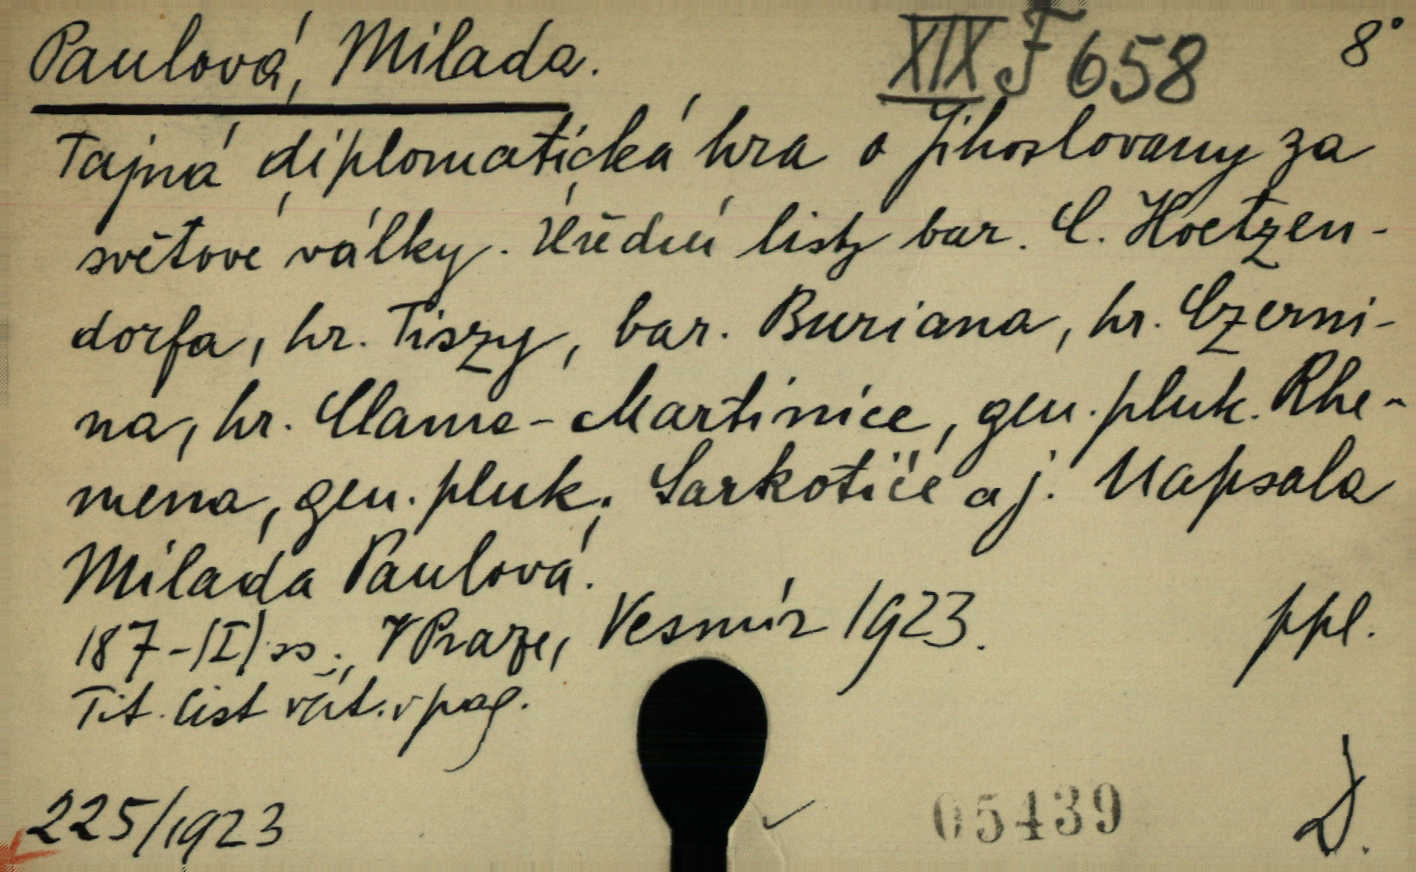 Paulová, Milada. XIX F 658 8°
Tajná diplomatická hra o Jihoslovany za
světové války. Úřední listy bar. C. Hoetzen-
dorfa, hr. Tiszy, bar. Buriana, hr. Czerni-
na, hr. Clama-Martinice, gen. pluk. Rhe-
mena, gen. pluk. Sarkotiće a j. Napsala
Milada Paulová.
187-(I) ss., V Praze, Vesmír 1923. ppl.
Tit. list včít. v pag.
225/1923 05439 D.